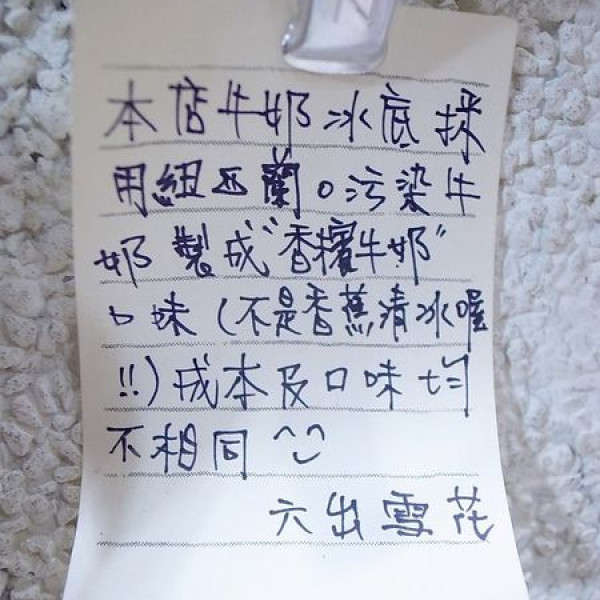 本店牛奶冰底採
用紐西蘭0污染牛
奶製成"香檳牛奶"
口味(不是香蕉清冰喔
!!)成本及口味均
不相同^◡^
六出雪花